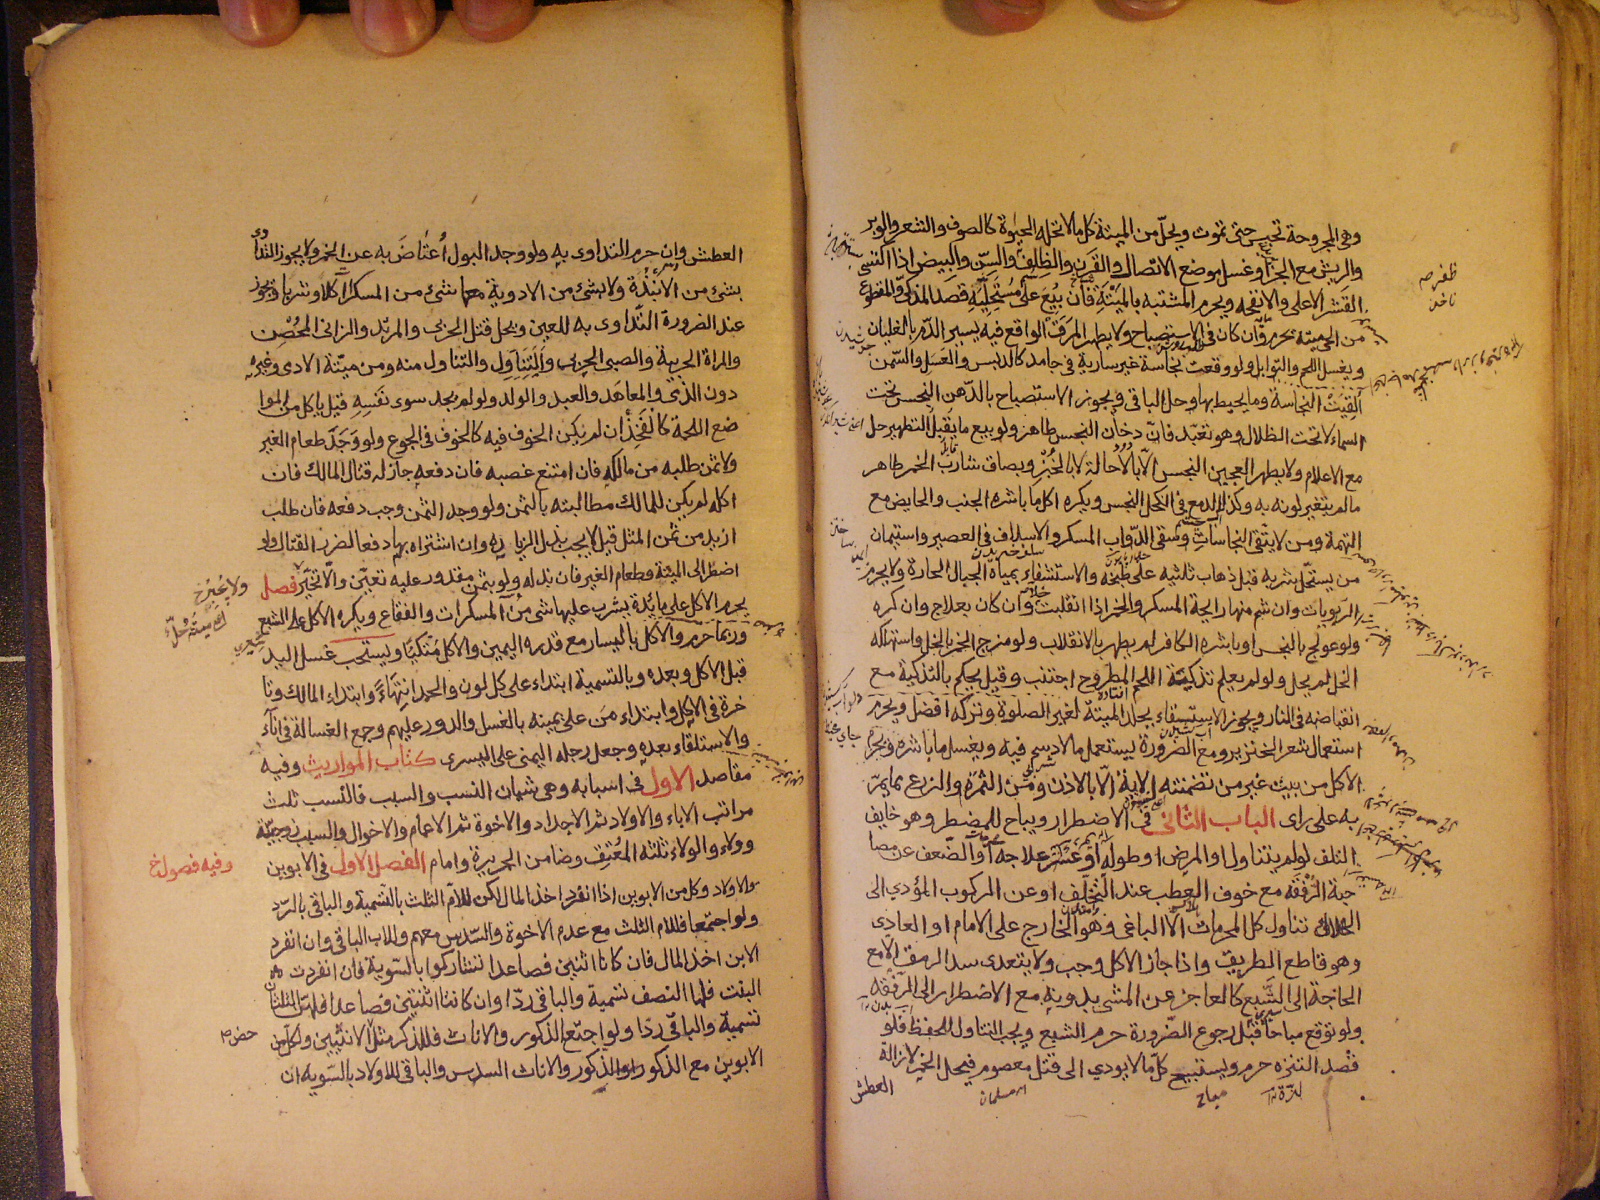 وهى المجروحة تحبس حتى تموت ويحلّ من الميتة كل ما لا تحله الحيوة كالصوف والشعر والوبر
والريش مع الجزّ او غسل موضع الاتصال والقرن والظلف والسنّ والبيض اذا اكتسى
القشر الاعلى والانفحه ويحرم المشتبه بالميتة فان بيع على مستحليه قصد المذكى والمقطوع
من الحى ميتة يحرم وان كان فى الاستصباح ولا يطهر المرق الواقع فيه يسير الدم بالغليان
ويغسل اللحم والتوابل ولو وقعت نجاسة غير سارية فى جامد كالدبس والعسل والسّمن
القيت النجاسة وما يحيط بها وحل الباقى ويجوز الاستصباح بالدّهن النجس تحت
السماء لا تحت الظلال وهو تعبّد فانّ دخان النجس طاهر ولو بيع ما يقبل التطهير حل
مع الاعلام ولا يطهر العجين النجس الّا بالاحالة لا بالخبز وبصاق شارب الخمر طاهر
مالم يتغير لونه به وكذا الدمع فى الكحل النجس ويكره اكل ما باشره الجنب والحايض مع
التهمة ومن لا يتقى النجاسات وسقى الدّواب المسكر والاسلاف فى العصير واستيمان
من يستحلّ شربه قبل ذهاب ثلثيه على طبخه والاستشفاء بمياه الجبال الحارة ولا يحرم
الربوبات وان شم منها رايحة المسكر والخمر اذا انقلبت خلا وان كان بعلاج وان كره
ولو عولج بالنجس او باشره الكافر لم يطهر بالانقلاب ولو مزج الخمر بالخل واستهلكه
الخل لم يحل ولو لم يعلم تذكية اللحم المطروح اجتنب وقيل يحكم بالتذكية مع
انقباضه فى النار ويجوز الاستسقاء بجلد الميتة لغير الصلوة وتركه افضل ويحرم
استعمال شعر الخنزير ومع الضرورة يستعمل مالا دسم فيه ويغسل ما باشره ويحرم
الاكل من بيت غير من تضمنته الاية الّا بالاذن ومن الثمرة والزرع بما يمرّ
به على راى الباب الثانى فى الاضطرار ويباح للمضطر وهو خايف
التلف لو لم يتناول او المرض او طوله او عسر علاجه او الضعف عن مصا
حبة الرفقة مع خوف العطب عند التخلّف او عن المركوب المؤدي الى
الهلاك تناول كل المحرمات الا الباغى وهو الخارج على الامام او العادى
وهو قاطع الطريق واذا جاز الاكل وجب ولا يتعدى سد الرمق الا مع
الحاجة الى الشّبع كالعاجز عن المشى بدونه مع الاضطرار الى الرفقه
ولو توقع مباحا قبل رجوع الضّرورة حرم الشبع ويجب التناول للحفظ فلو
قصد التنزه حرم ويستبيح كلّ مالا يودي الى قتل معصوم فيحل الخمر لازالة
العطش
العطش وان حرم التداوى به ولو وجد البول اعتاض به عن الخمر ولا يجوز التداوى
بشئ من الانبذة ولا بشئ من الادوية معها شئ من المسكر اكلا وشربا ويجوز
عند الضرورة التّداوى به للعين ويحل قتل الحربى والمرتد والزانى المحصن
والمراة الحربية والصبى الحربى والتناول منه ومن ميّتة الادمى وغيره
دون الذمّى والمعاهد والعبد والولد ولو لم يجد سوى نفسه قيل ياكل من الموا
ضع اللحمة كالفخذ ان لم يكن الخوف فيه كالخوف فى الجوع ولو وجد طعام الغير
ولا ثمن طلبه من مالكه فان امتنع غصبه فان دفعه جاز له قتال المالك فان
اكله لم يكن للمالك مطالبته بالثمن ولو وجد الثمن وجب دفعه فان طلب
ازيد من ثمن المثل قيل لا يجب بذل الزيادة وان اشتراه بها دفعا لضرر القتال ولو
اضطر الى الميتة وطعام الغير فان بذله ولو بثمن مقدور عليه تعيّن والّا تخيّر فصل
يحرم الاكل على مايدة يشرب عليها شئ من المسكرات والفقاع ويكره الاكل على الشبع
وربما حرم والاكل باليسار مع قدره اليمين والاكل متكيا ويستحب غسل اليد
قبل الاكل وبعده وبالتسمية ابتداء على كل لون والحمد انتهاء وابتداء المالك وتا
خره فى الاكل وابتداء من على يمينه بالغسل والدور عليهم وجمع الغسالة فى اناء
والاستلقاء بعده وجعل رجله اليمنى على اليسرى كتاب المواريث وفيه
مقاصد الاول فى اسبابه وهى شيئان النسب والسبب فالنسب ثلث
مراتب الاباء والاولاد ثم الاجداد والاخوة ثم الاعمام والاخوال والسبب زوجيّة
وولاء والولاء ثلثة المعتق وضامن الجريرة وامام الفصل الاول فى الابوين
والاولاد وكل من الابوين اذا انفرد اخذ المال لكن للام الثلث بالتسمية والباقى بالرّد
ولو اجتمعا فللام الثلث مع عدم الاخوة والسّدس معهم وللاب الباقى وان انفرد
الابن اخذ المال فان كانا اثنين فصاعدا تشاركوا بالسّوية فان انفردت
البنت فلها النصف تسمية والباقى ردّا وان كانتا اثنتين فصاعدا فلهن الثلثان
تسمية والباقى ردا ولو اجتمع الذكور والاناث فللذكر مثل الانثيين ولكل من
الابوين مع الذكور او الذكور والاناث السدس والباقى للاولاد بالسّويه ان
وفيه فصول خ